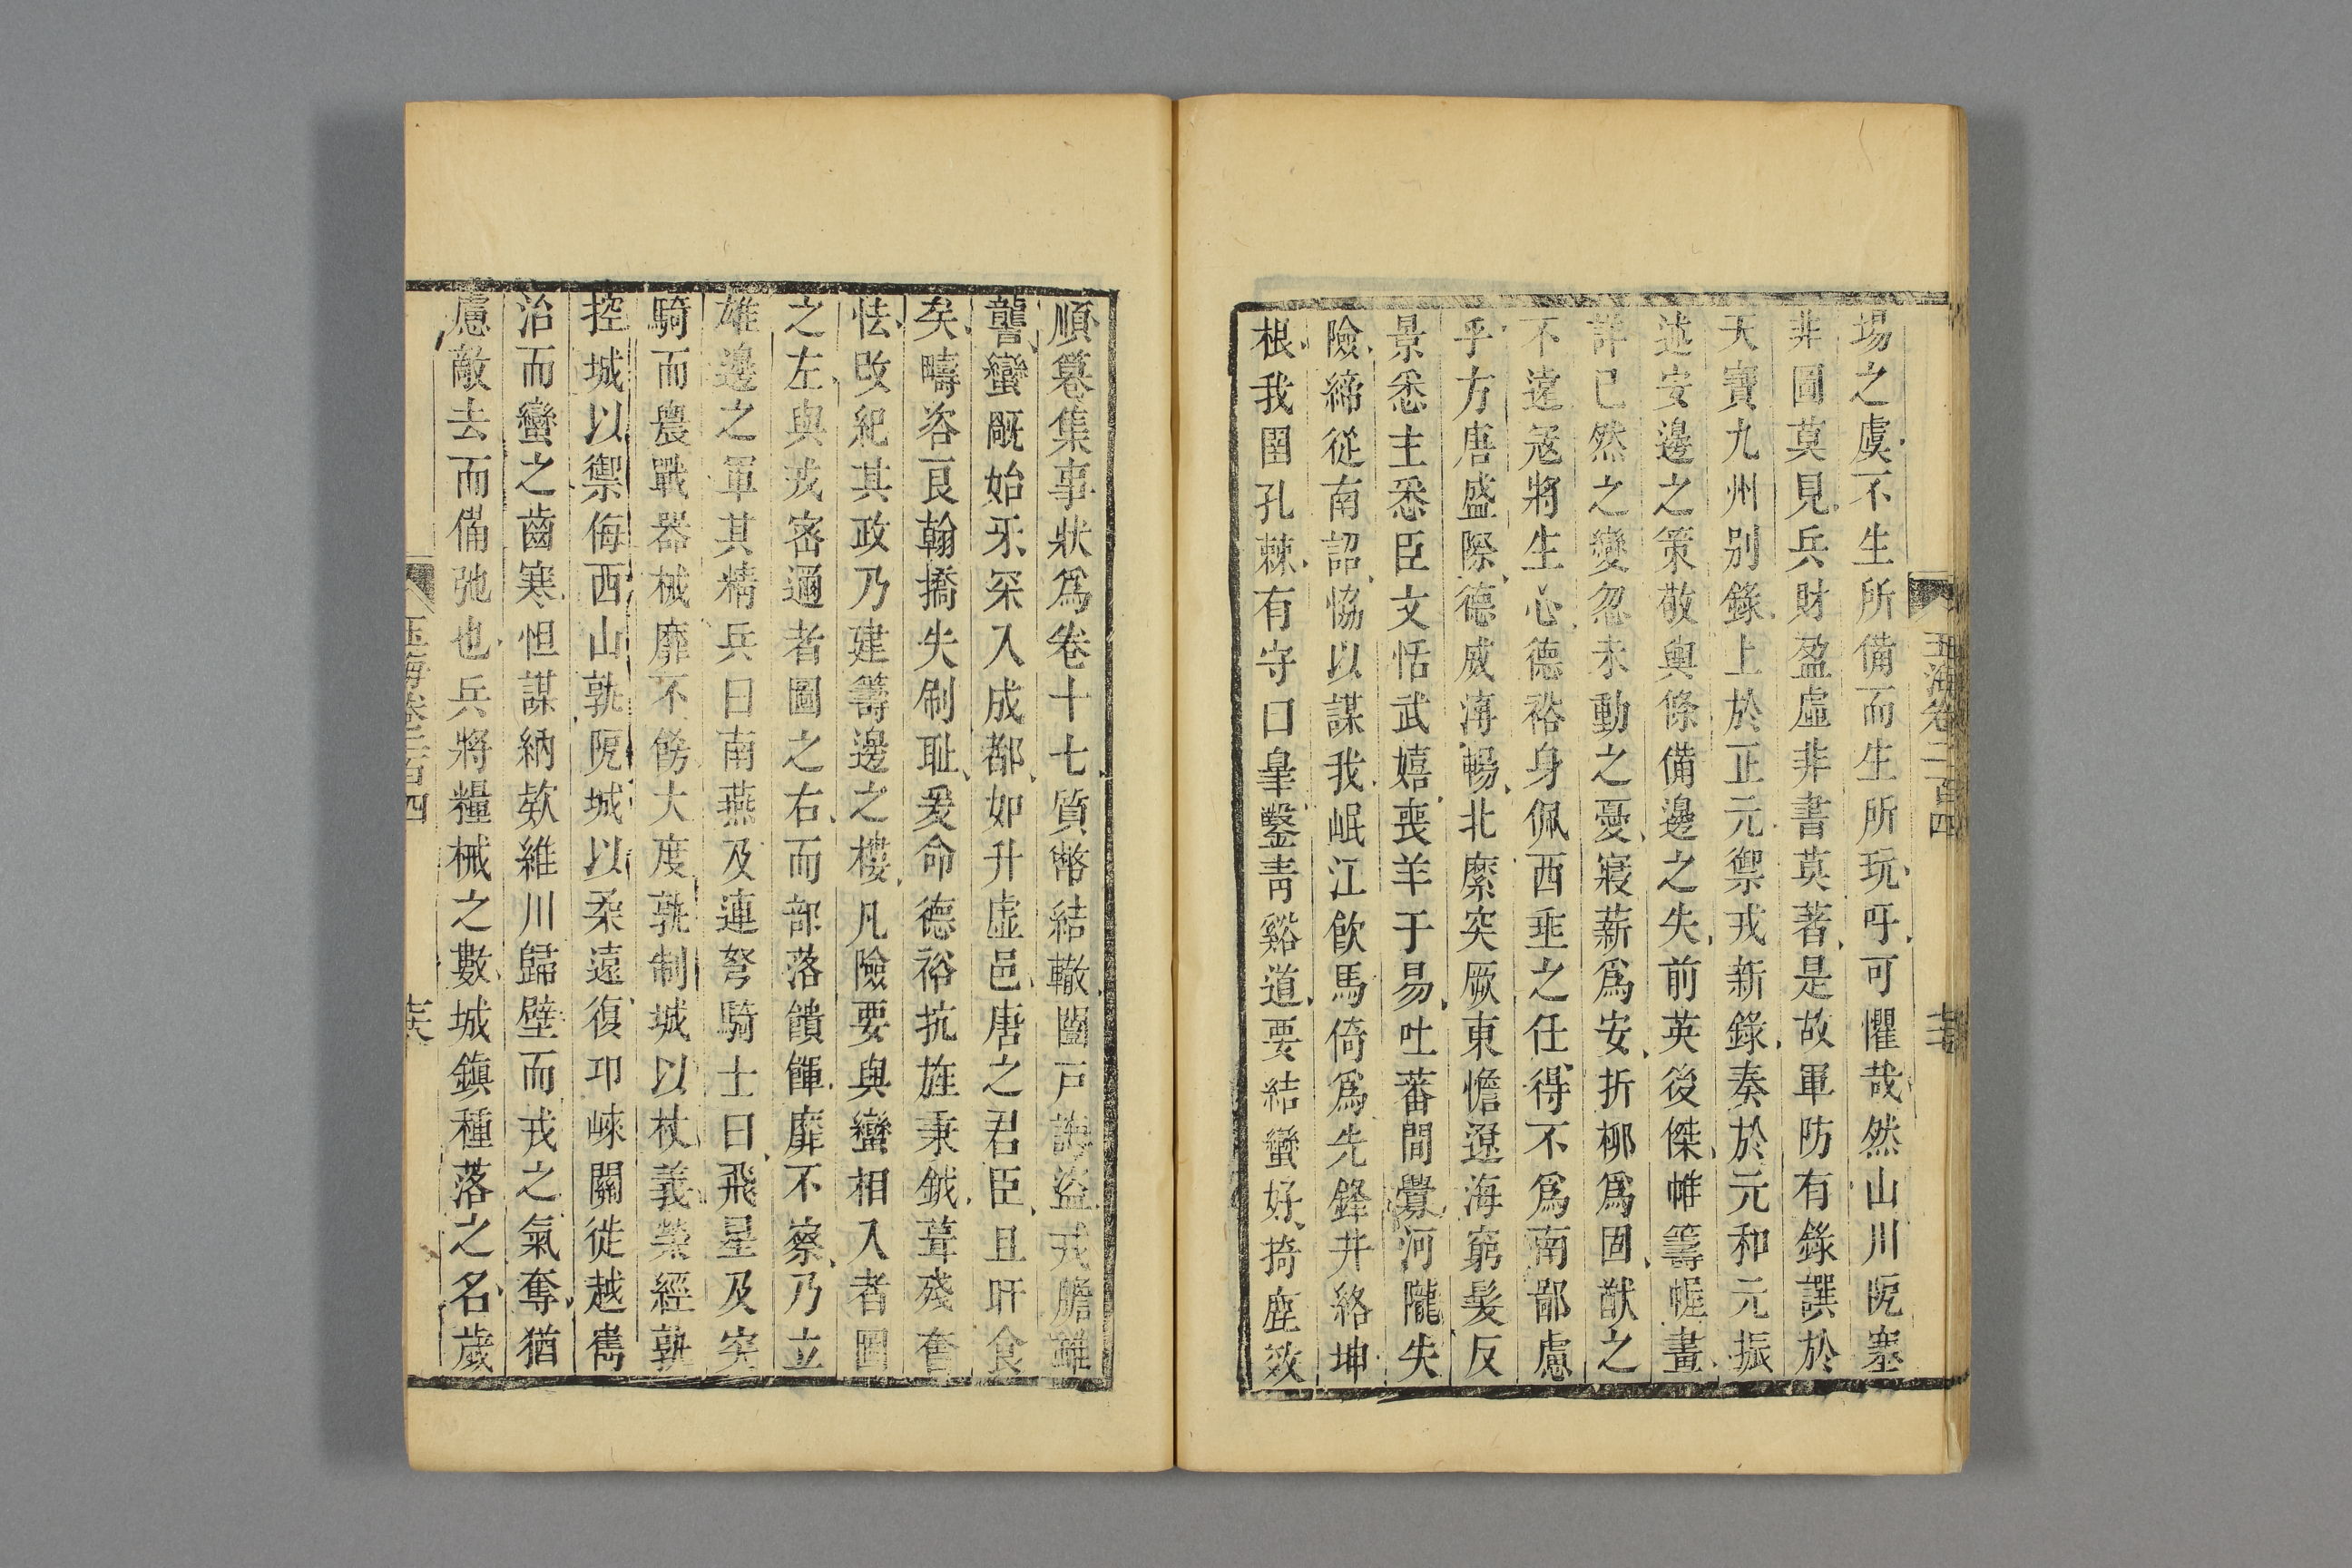 玉海卷二百四
場之虞不生所備而生所玩吁可懼哉然山川阨塞
非圖莫見兵財盈虛非書莫著是故軍防有錄譔於
天寶九州別錄上於正元禦戎新錄奏於元和元振
述安邊之策敬輿條備邊之失前英後傑帷籌幄畫
詳已然之變忽未動之憂寢薪爲安折柳爲固猷之
不遠寇將生心德裕身佩西垂之任得不爲南鄙慮
乎方唐盛際德威溥暢北縻突厥東憺遼海窮髮反
景悉主悉臣文恬武嬉喪羊于易吐蕃間釁河隴失
險締從南詔恊以謀我岷江飲馬倚爲先鋒井絡坤
根我圉孔棘有守曰皐鑿青谿道要結蠻好掎鹿效
順篹集事狀爲卷十七質幣結轍闔戸誨盜戎膽雖
讋蠻厩始牙罙入成都如升虛邑唐之君臣且旰食
矣疇咨良翰撟失刷耻爰命德裕抗旌秉鉞葺殘奮
怯改紀其政乃建籌邊之樓凡險要與蠻相入者圖
之左與戎宻邇者圖之右而部落饋餫靡不察乃立
雄邊之軍其精兵曰南燕及連弩騎士曰飛星及突
騎而農戰器械靡不飭大度孰制城以杖義滎經孰
控城以禦侮西山孰阨城以柔遠復卭崍關徙越雋
治而蠻之齒寒怛謀納欵維川歸壁而戎之氣奪猶
慮敵去而備弛也兵將糧械之數城鎮種落之名歲
玉海卷二百四